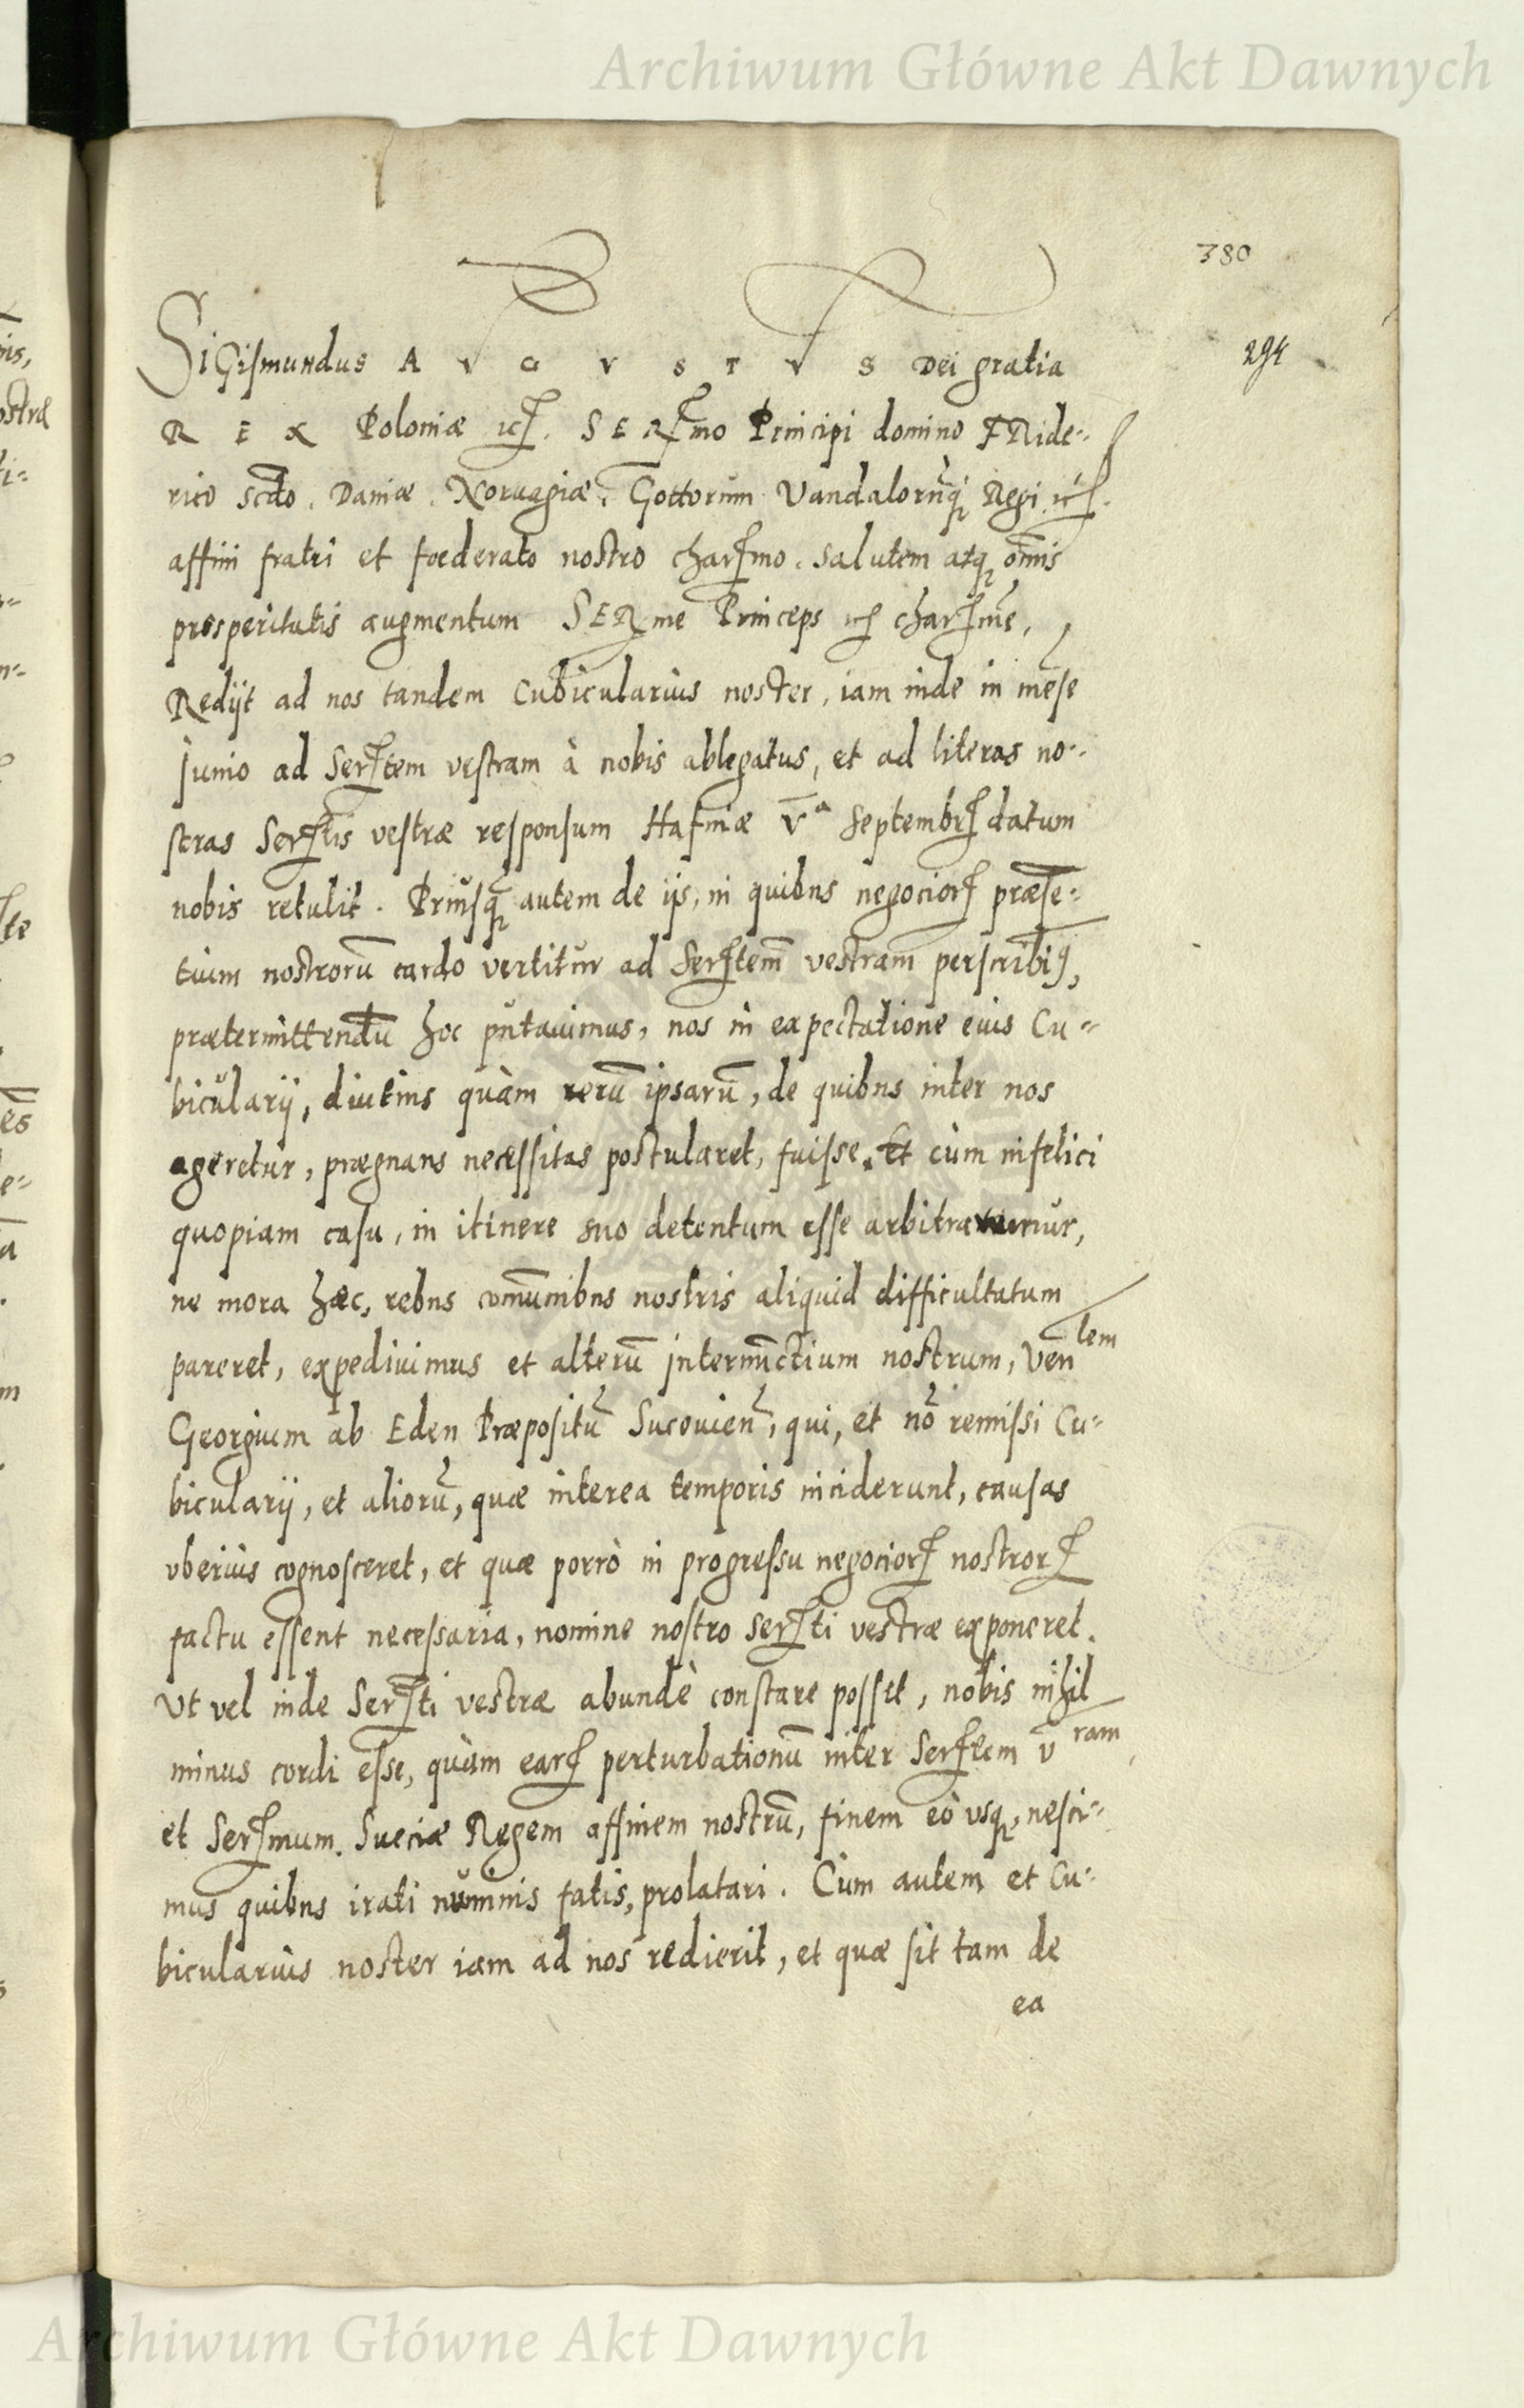 Archiwum Główne Akt Dawnych
380
294
Sigismundus AVGVSTVS Dei gratia
REX Poloniæ etc. SERmo Principi domino FRide-
rico scdo. Daniæ. Noruagiæ. Gottorum Vandalorūq; Regi etc.
affini fratri et foederato nostro charmo. salutem atq; omīs
prosperitatis augmentum SERme Princeps etc charme,
Redijt ad nos tandem Cubicularius noster, iam inde in mēse
Junio ad Sertem vestram à nobis ablegatus, et ad literas no-
stras Sertis vestræ responsum Hafniæ Vᵃ Septembr datum
nobis retulit. Priusq; autem de ijs, in quibus negocior præsē-
tium nostrorū cardo vertitur ad Sertem vestram perscribim⁹,
prætermittendū hoc putauimus, nos in expectatione eius Cu-
bicularij, diutius quàm rerū ipsarū, de quibus inter nos
ageretur, prægnans necessitas postularet, fuisse. Et cùm infelici
quopiam casu, in itinere suo detentum esse arbitraremur,
ne mora hæc, rebus comūnibus nostris aliquid difficultatum
pareret, expediuimus et alterū internūctium nostrum, Venlem
Georgium ab Eden Præpositū Sucouien, qui, et nō remissi Cu-
bicularij, et aliorū, quæ interea temporis inciderunt, causas
vberius cognosceret, et quæ porrò in progressu negocior nostror
factu essent necessaria, nomine nostro serti vestræ exponeret.
Vt vel inde Serti vestræ abundè constare posset, nobis nihil
minus cordi esse, quàm ear perturbationū inter Sertem vram
et Sermum. Sueciæ Regem affinem nostrū, finem eò vsq;, nesci-
mus quibus irati numinis fatis, prolatari. Cùm autem et Cu-
bicularius noster iam ad nos redierit, et quæ sit tam de
ea
Archiwum Główne Akt Dawnych